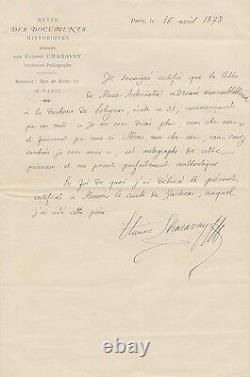 REVUE
DES DOCUMENTS
HISTORIQUES
RÉDIGÉE
PAR ÉTIENNE CHARAVAY
Archiviste-Paléographe
BUREAUX : Rue de Seine,
A PARIS
Paris, le 16 avril 1878
Je soussigné certifie que la lettre
de Marie-Antoinette adressée
à la duchesse de Polignac, commençant
par ces mots « Je ne vous dirai plus, mon cher
et finissant par ceux-ci : Adieu mon cher vous savez
combien je vous aime », est autographe de cette
princesse et me paraît parfaitement authentique
En foi de quoi j'ai délivré le présent
certificat à Monsieur le comte de auquel
j'ai cédé cette pièce
Etienne Charavay